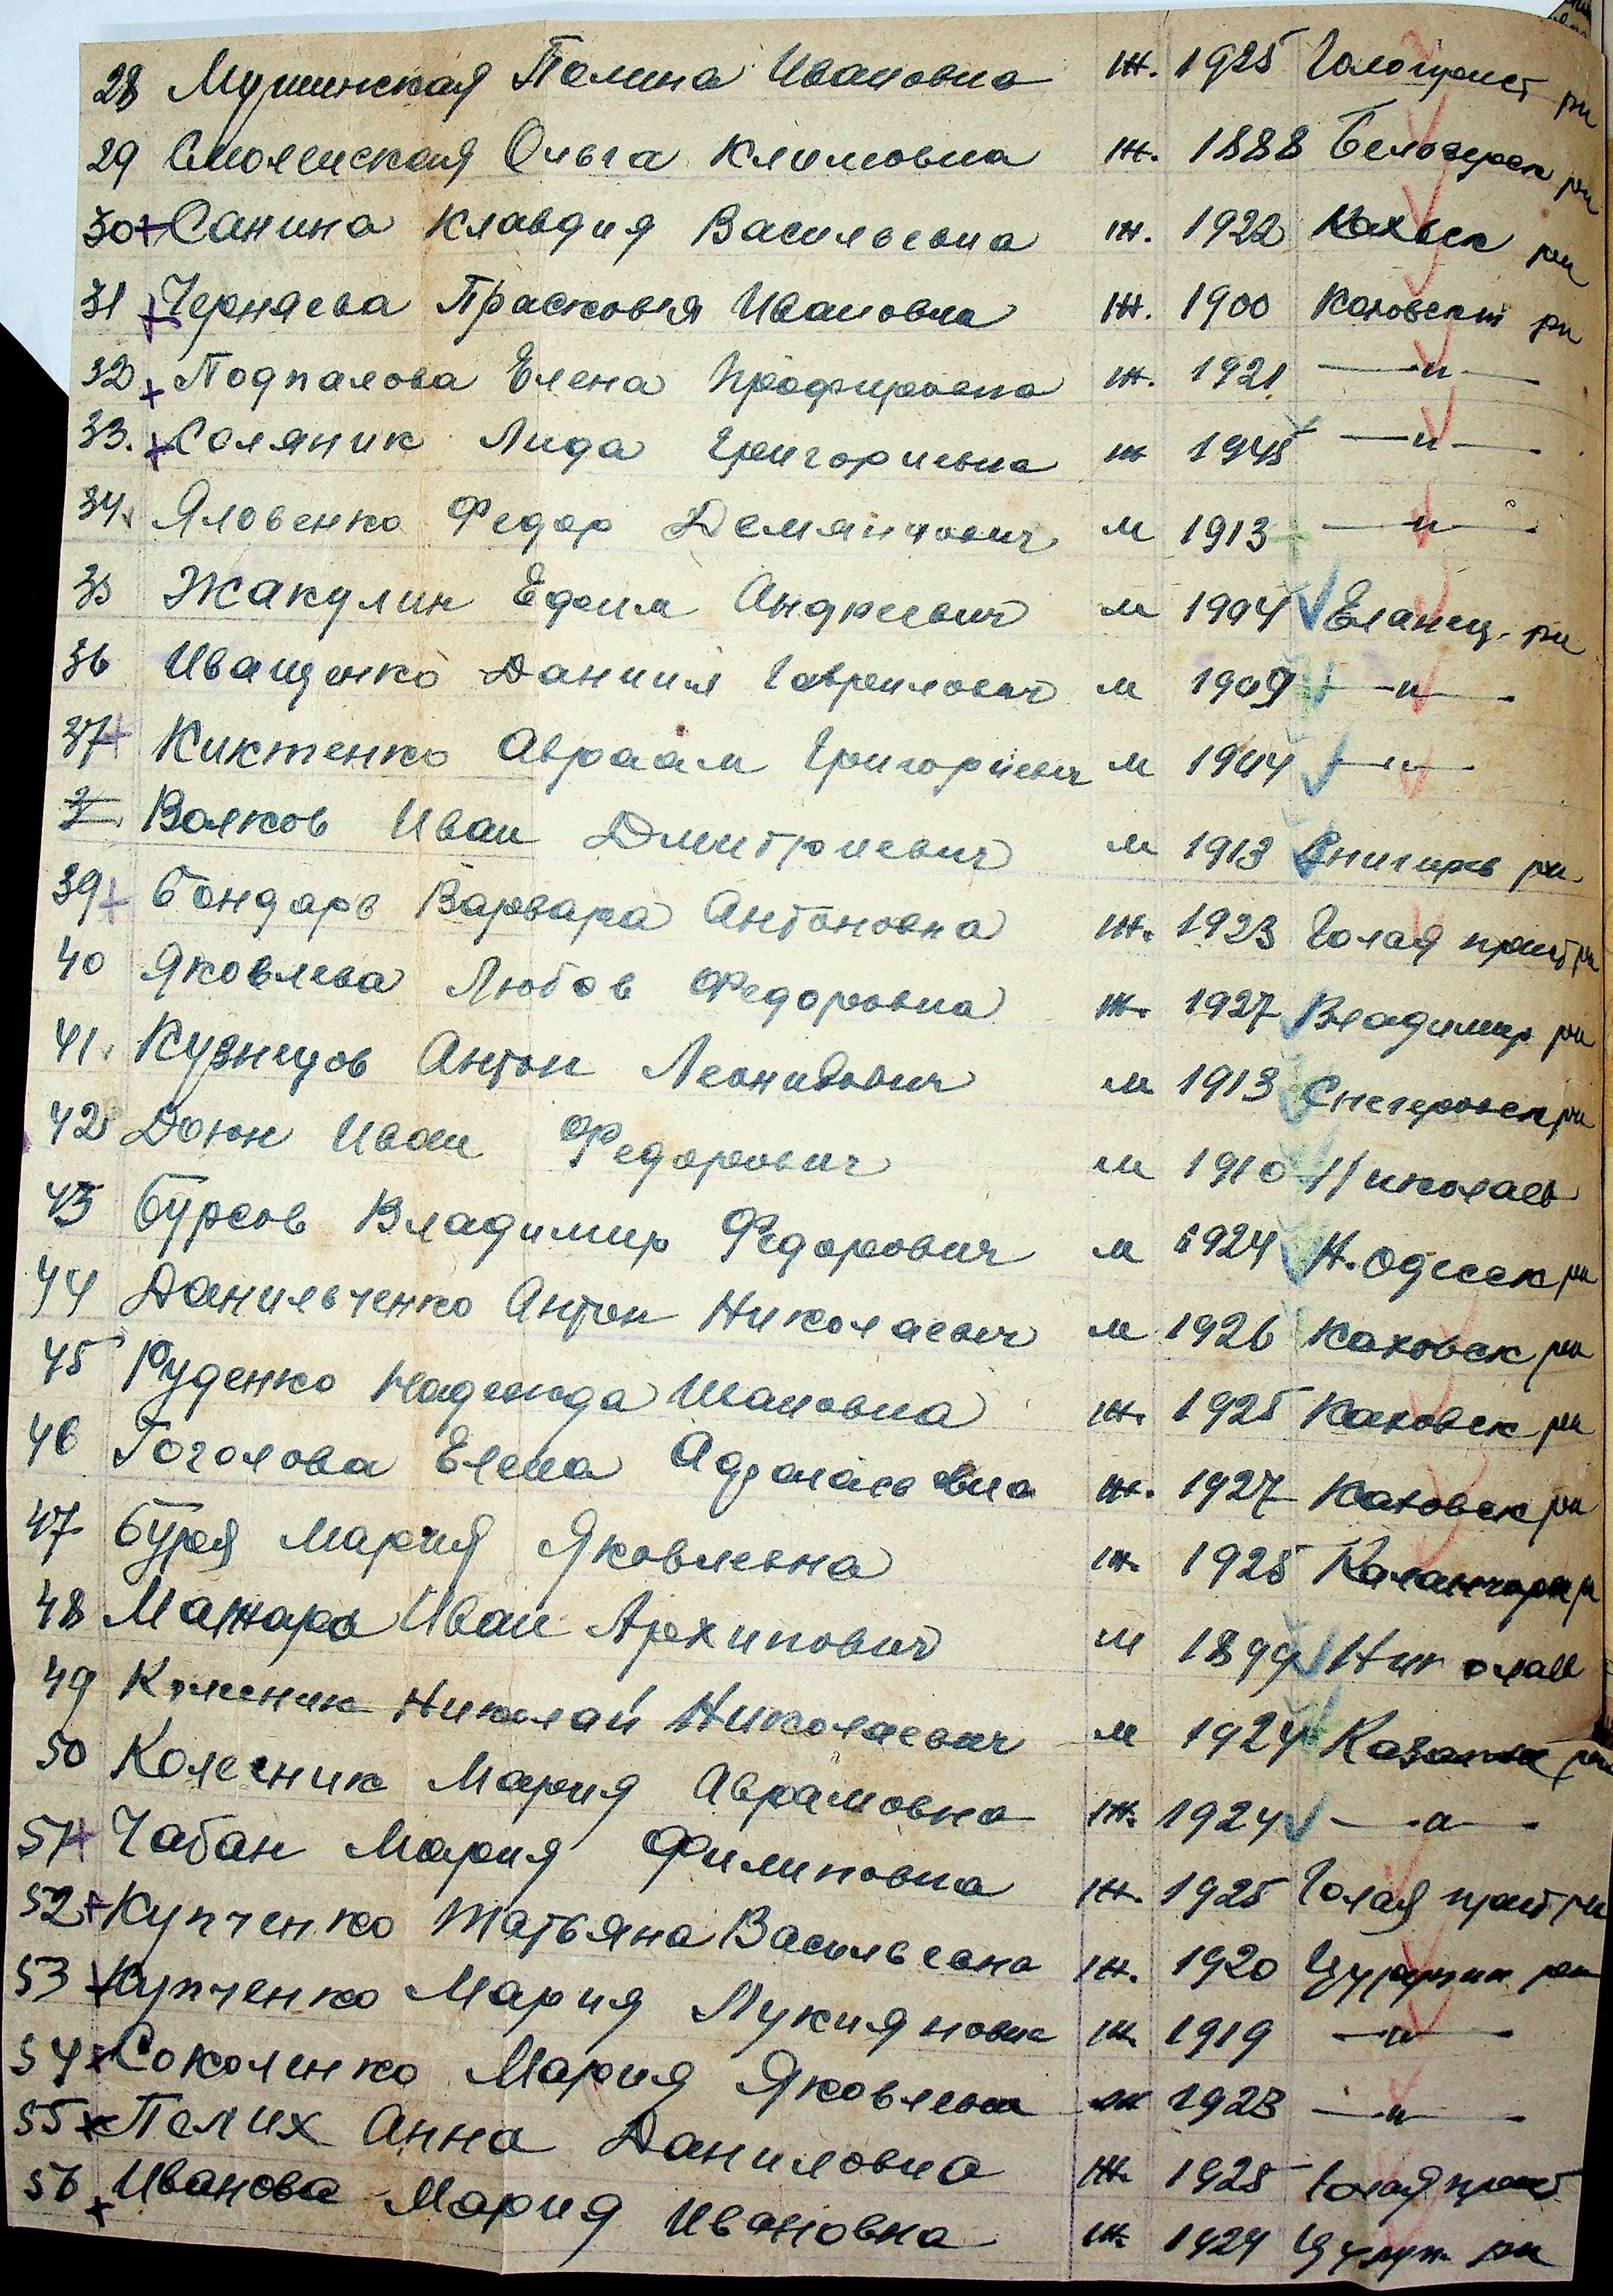 28 Мушинская Полина Ивановна ж. 1925 Голоприст рн
29 Смоленская Ольга Климовна ж. 1888 Белозерск рн
30 + Санина Клавдия Васильевна ж. 1922 Кахвск рн
31 + Черняева Прасковья Ивановна ж. 1900 Каховский рн
32 + Подпалова Елена Профировна ж. 1921 —"—
33. + Соляник Лида Григорьевна ж 1945 —"—
34. Яловенко Федор Демянович м 1913 —"—
35 Жакулин Ефим Андреевич м 1904 Еланец. рн
36 Иващенко Даниил Гаврилович м 1909 —"—
37 + Киктенко Авраам Григориевич м 1904 —"—
Волков Иван Дмитриевич м 1913 Снигирв рн
39 + Бондарь Варвара Антоновна ж. 1923 Голая прист рн
40 Яковлева Любов Федоровна ж. 1927 Владимир рн
41. Кузнецов Антон Леонидович м 1913 Снегеровск рн
42 Доюн Иван Федорович м 1910 Николаев
43 Бурсов Владимир Федорович м 1924 Н. Одесск рн
44 Данильченко Антон Николаевич м 1926 Каховск рн
45 Руденко Надежда Ивановна ж. 1925 Каховск рн
46 Гоголова Елена Афонасевна ж. 1927 Каховск рн
47 Буря Мария Яковлевна ж. 1925 Каланчарк р
48 Мажара Иван Архипович м 1899 Николаев
49 Николай Николаевич м 1924 Казанк рн
50 Колесник Мария Аврамовна ж. 1924 —"—
51 + Чабан Мария Филиповна ж. 1925 Голая прист рн
52 + Купченко Татьяна Васильевна ж. 1920 Цурупин рн
53 Купченко Мария Лукияновна ж. 1919 —"—
54 х Соколенко Мария Яковлевна ж 1923 —"—
55 х Пелих Анна Даниловна ж. 1925 Голая прист
56 х Иванова Мария Ивановна ж. 1924 Цуруп. рн